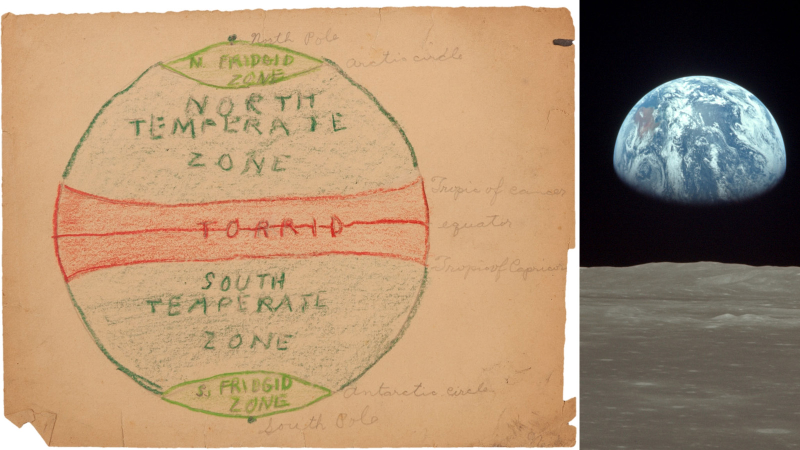 North Pole
N. FRIDGID
ZONE
arctic circle
NORTH
TEMPERATE
ZONE
Tropic of cancer
TORRID
equator
Tropic of Capricorn
SOUTH
TEMPERATE
ZONE
S. FRIDGID
ZONE
antarctic circle
South Pole